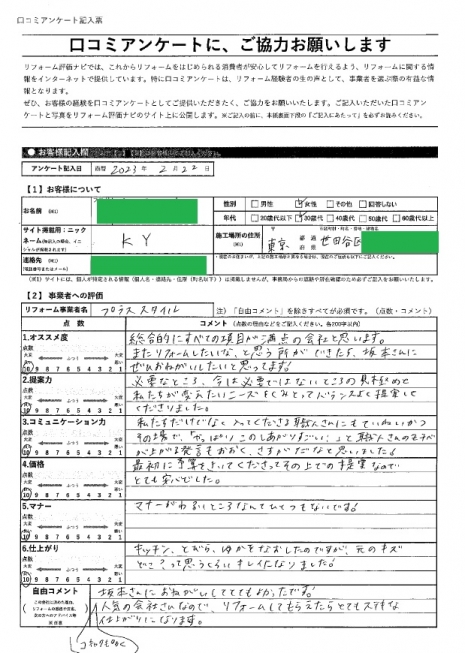 口コミアンケート記入票
口コミアンケートに、ご協力お願いします
リフォーム評価ナビでは、これからリフォームをはじめられる消費者が安心してリフォームを行えるよう、リフォームに関する情
報をインターネットで提供しています。特に口コミアンケートは、リフォーム経験者の生の声として、事業者を選ぶ際の有益な情
報となります。
ぜひ、お客様の経験を口コミアンケートとしてご提供いただきたく、ご協力をお願いいたします。ご記入いただいた口コミアン
ケートと写真をリフォーム評価ナビのサイト上に公開します。※ご記入の前に、本紙裏面下段の『ご記入にあたって』を必ずお読みください。
● お客様記入欄
アンケート記入日 西暦 2023年 2月22日
【1】お客様について
お名前 (※1)
性別 □男性 □女性 □その他 □回答しない
年代 □20歳代以下 □30歳代 □40歳代 □50歳代 □60歳代以上
サイト掲載用：ニック
ネーム
KY
施工場所の住所 (※1)
東京 都 世田谷区
連絡先 (※1)
【電話番号またはメール】
【2】事業者への評価
リフォーム事業者名 プラススタイル 注）「自由コメント」を除きすべて必須です。（点数・コメント）
点 数 コメント（点数の理由などをご記入ください。各200字以内）
1.オススメ度
点数
大変 良い ふつう 大変 悪い
10 9 8 7 6 5 4 3 2 1
総合的にすべての項目が満点の会社と思います。
またリフォームしたいな、と思う所ができたら、坂本さんに
ぜひおねがいしたいと思ってます!
2.提案力
点数
大変 良い ふつう 大変 悪い
10 9 8 7 6 5 4 3 2 1
必要なところ、今は必要ではないところの見極めと
私たちが変えたいニーズをくみとってバランスよく提案して
くださりました。
3.コミュニケーション力
点数
大変 良い ふつう 大変 悪い
10 9 8 7 6 5 4 3 2 1
私たちだけでなく入ってくださる職人さんにもていねいかつ
その場で、「やっぱりこのしあがりすごい!」と職人さんのモチベ
が上がる発言もおおく、さすがだなと思いました!
4.価格
点数
大変 良い ふつう 大変 悪い
10 9 8 7 6 5 4 3 2 1
最初に予算をきいてくださってその上での提案なので
とても安心でした。
5.マナー
点数
大変 良い ふつう 大変 悪い
10 9 8 7 6 5 4 3 2 1
マナーがわるいところなんてひとつもないです!
6.仕上がり
点数
大変 良い ふつう 大変 悪い
10 9 8 7 6 5 4 3 2 1
キッチン、とびら、ゆかをなおしたのですが、元のキズ
どこ?って思うくらいキレイになりました!
自由コメント
坂本さんにおねがいしてとてもよかったです!
人気の会社さんなので、リフォームしてもらえたらとてもステキな
仕上がりになります。